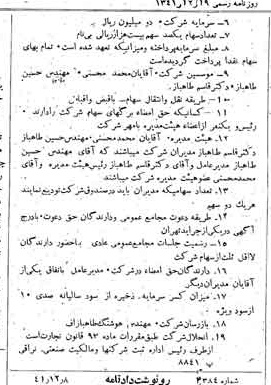 روزنامه رسمی ۱۳۴۱/۱۲/۱۹
۶- سرمایه شرکت: دو میلیون ریال
۷- تعدادسهام یکصد سهم بیست‌هزارریالی بی‌نام
۸- مبلغ سرمایه‌پرداخته ومیزانیکه تعهد شده است: تمام بهای
سهام نقدا پرداخت گردیده‌است
۹- موسسین شرکت: آقایان‌محمد محسنی: مهندس حسین
طاهباز: دکترقاسم طاهباز
۱۰- طریقه نقل وانتقال سهام- باقبض واقباض
۱۱- کسانیکه حق امضاء برگهای سهام شرکت رادارند:
رئیس ویکنفر ازاعضاء هیئت‌مدیره بامهر شرکت
۱۲- هیئت مدیره: آقایان محمدمحسنی، مهندس‌حسین طاهباز
دکترقاسم طاهباز مدیران شرکت میباشند که آقای مهندس حسین
طاهباز مدیرعامل وآقای دکترقاسم طاهباز رئیس‌هیئت مدیره وآقای
محمدمحسنی عضوهیئت مدیره شرکت میباشند
۱۳- تعداد سهامیکه مدیران باید درصندوق‌شرکت‌تودیع‌نمایند
هریک دو سهم
۱۴- طریقه دعوت مجامع عمومی ودارندگان حق دعوت: بادرج
آگهی دریکی‌ازجراید تهران
۱۵- رسمیت جلسات مجامع‌عمومی عادی باحضور دارندگان
لااقل ثلث‌از سهام شرکت
۱۶- دارندگان‌حق امضاء در شرکت: مدیرعامل باتفاق یکی‌از
آقایان مدیران‌دیگر
۱۷- میزان کسر سرمایه ذخیره از سود سالیانه صدی ۱۰
ازسود ویژه
۱۸- بازرسان شرکت: مهندس هوشنگ‌طاهباز
۱۹- انحلال‌شرکت طبق‌مقررات ماده ۹۳ قانون تجارت‌است
ازطرف رئیس اداره ثبت شرکتها ومالکیت صنعتی. نراقی
پ ۸۸۴۱
شماره ۳۳۸۴ رونوشت‌دادنامه ۴۱/۱۲/۸